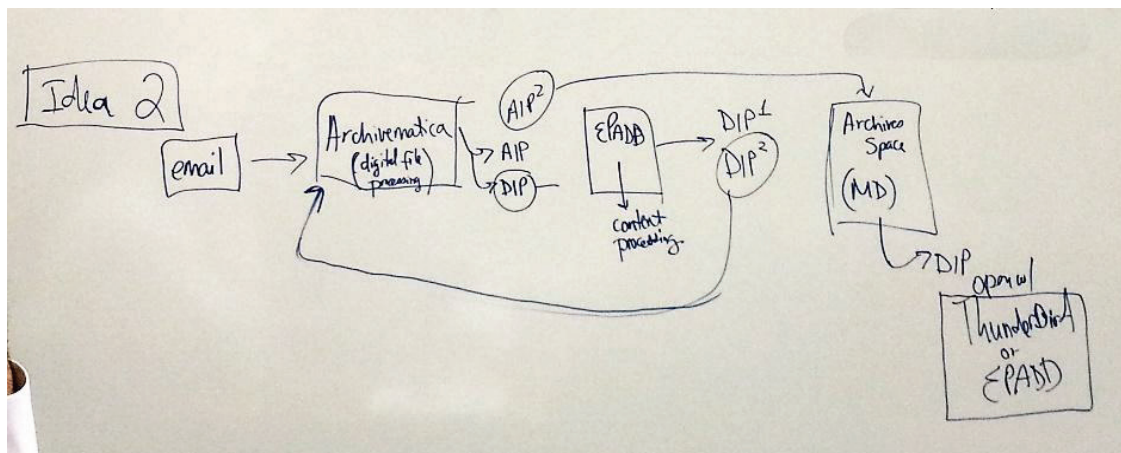 Idea 2
email
Archivematica
(digital file
processing)
AIP²
AIP
DIP
EPADD
content
processing
DIP¹
DIP²
Archives
Space
(MD)
DIP
open w/
ThunderBird
or
EPADD